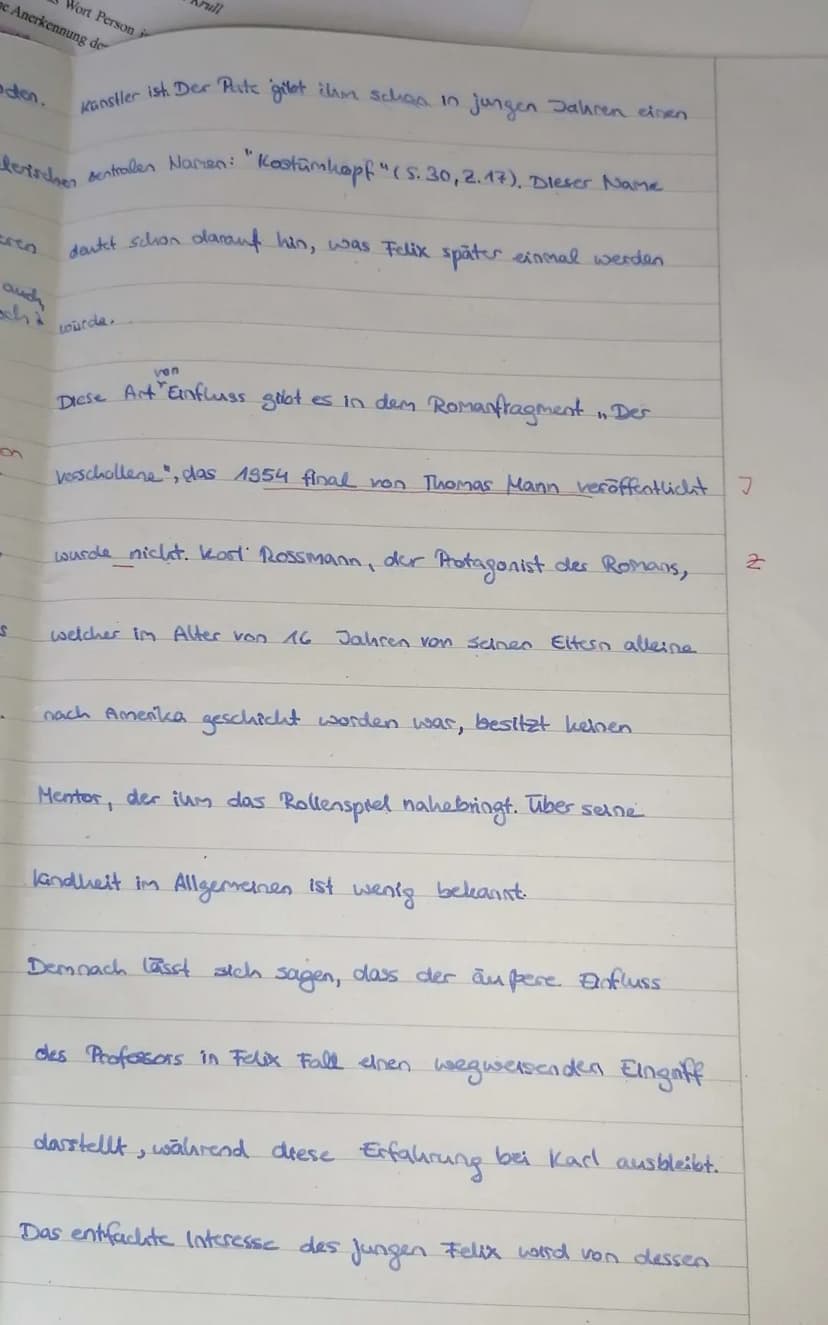 Wort Person
Krull
Anerkennung de
den.
Künstler ist. Der Pate gibt ihm schon in jungen Jahren einen
lerischen zentralen Namen: "Kostümkopf" (S. 30, Z. 17). Dieser Name
deutet schon darauf hin, was Felix später einmal werden
auch
würde.
von
Diese Art Einfluss gibt es in dem Romanfragment „Der
on
Verschollene", das 1954 final von Thomas Mann veröffentlicht
wurde nicht. Karl Rossmann, der Protagonist des Romans,
Z
s welcher im Alter von 16 Jahren von seinen Eltern alleine
nach Amerika geschickt worden war, besitzt keinen
Mentor, der ihm das Rollenspiel nahebringt. Über seine
Kindheit im Allgemeinen ist wenig bekannt.
Demnach lässt sich sagen, dass der äußere Einfluss
des Professors in Felix Fall einen wegweisenden Eingriff
darstellt, während diese Erfahrung bei Karl ausbleibt.
Das entfachte Interesse des jungen Felix wird von dessen